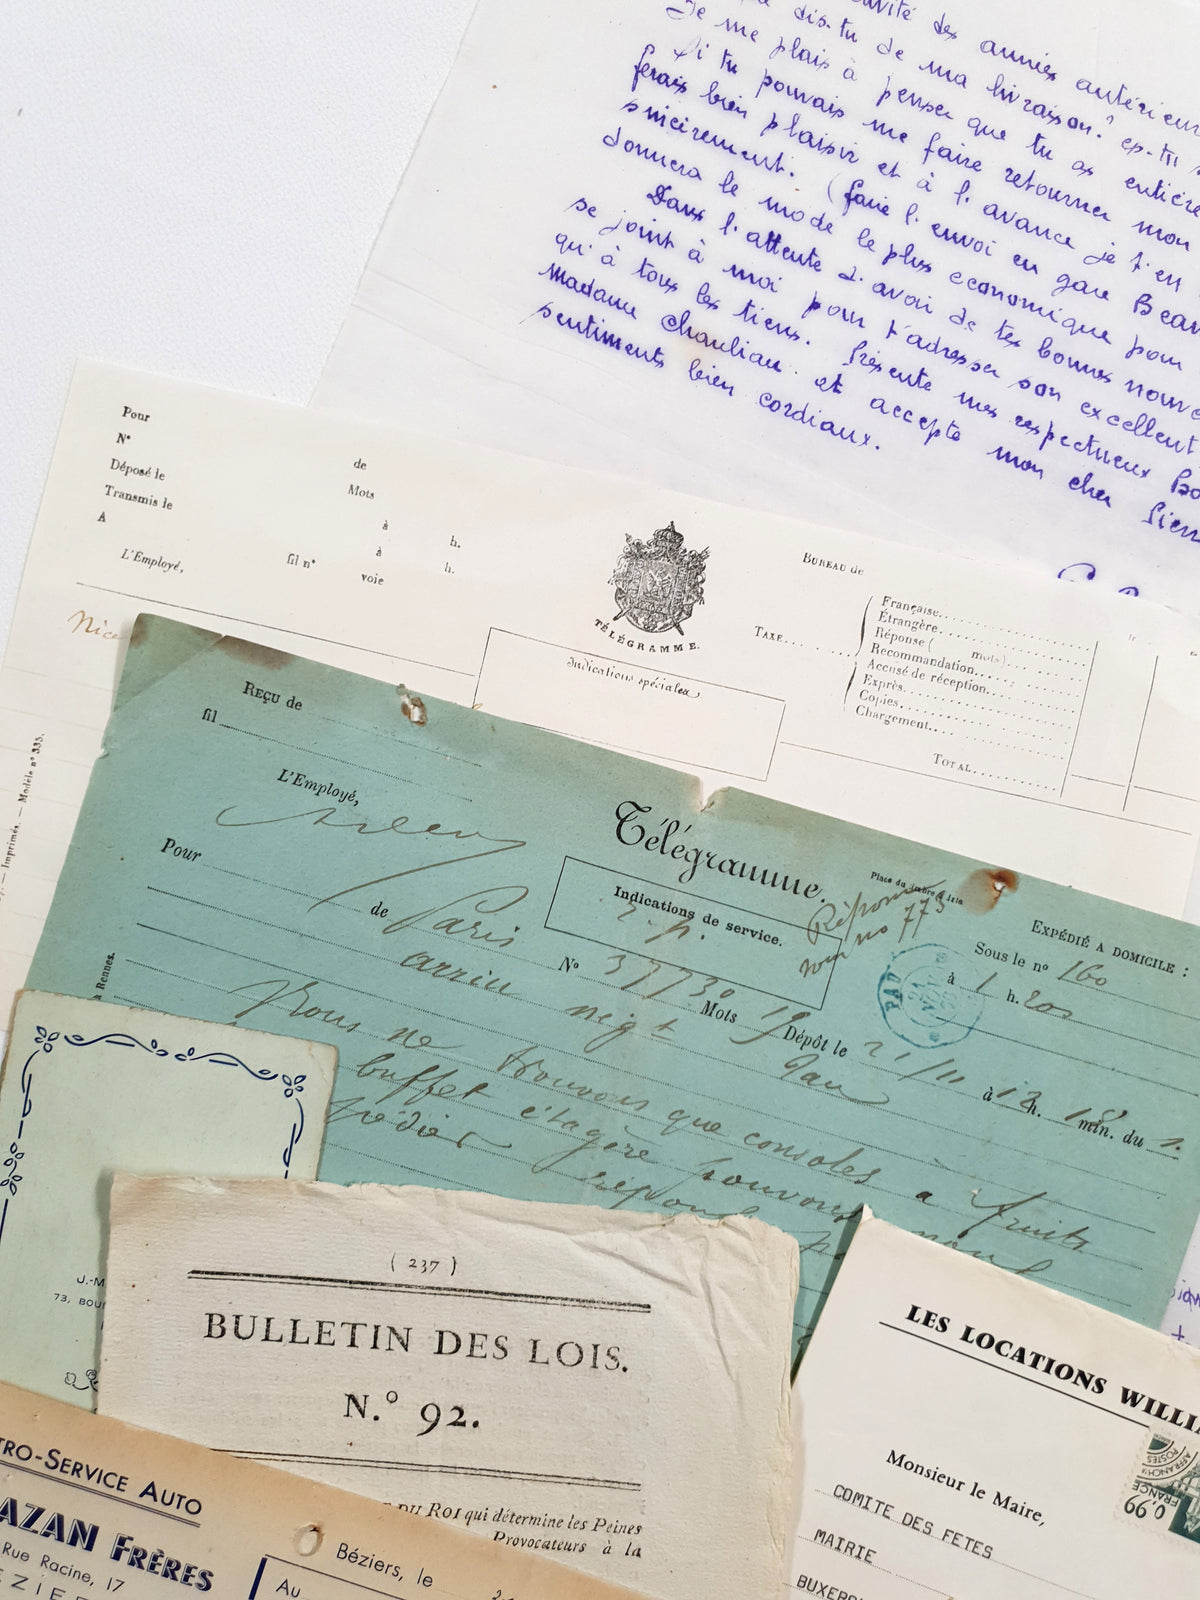 dis-tu de ma livraison? es-tu
des années antérieur
Je me plais à penser que tu as entière
Si tu pouvais me faire retourner mon
ferais bien plaisir et à l'avance je t'en
sincèrement. (faire l'envoi en gare Beau
donnera le mode le plus economique pour
Dans l'attente d'avoir de tes bonnes nouve
se joint à moi pour t'adresser son excellent
qu'à tous les tiens. Présente mes respectueux
madame Chauliau et accepte mon cher Pierr
sentiments bien cordiaux.
Pour
N°
de
Déposé le
Mots
Transmis le
à
h.
A
à
h.
L'Employé,
fil n°
voie
TÉLÉGRAMME.
Indications spéciales
BUREAU de
TAXE
Française
Étrangère
Réponse ( mots)
Recommandation
Accusé de réception
Exprès
Copies
Chargement
TOTAL
Nice
— Imprimés. — Modèle n° 335.
REÇU de
fil
L'Employé,
Télégramme.
Indications de service.
Place du timbre à date
Réponse
no 773
EXPÉDIÉ A DOMICILE :
Sous le n° 160
à 1 h. 20
PAU
Pour
de Paris
N° 37730
Mots 19
Dépôt le 21/11 à 12 h. 15 min. du
à Rennes.
Nous ne trouvons que consoles a fruits
buffet étagère pouvons nous
J.-M
73, BOU
( 237 )
BULLETIN DES LOIS.
N.° 92.
DU ROI qui détermine les Peines
Provocateurs à la
LES LOCATIONS WILLIA
FRANCE
0,99
Monsieur le Maire,
COMITE DES FETES
MAIRIE
BUXERO
TRO-SERVICE AUTO
AZAN FRÈRES
Rue Racine, 17
ÉZIE
Béziers, le
Au